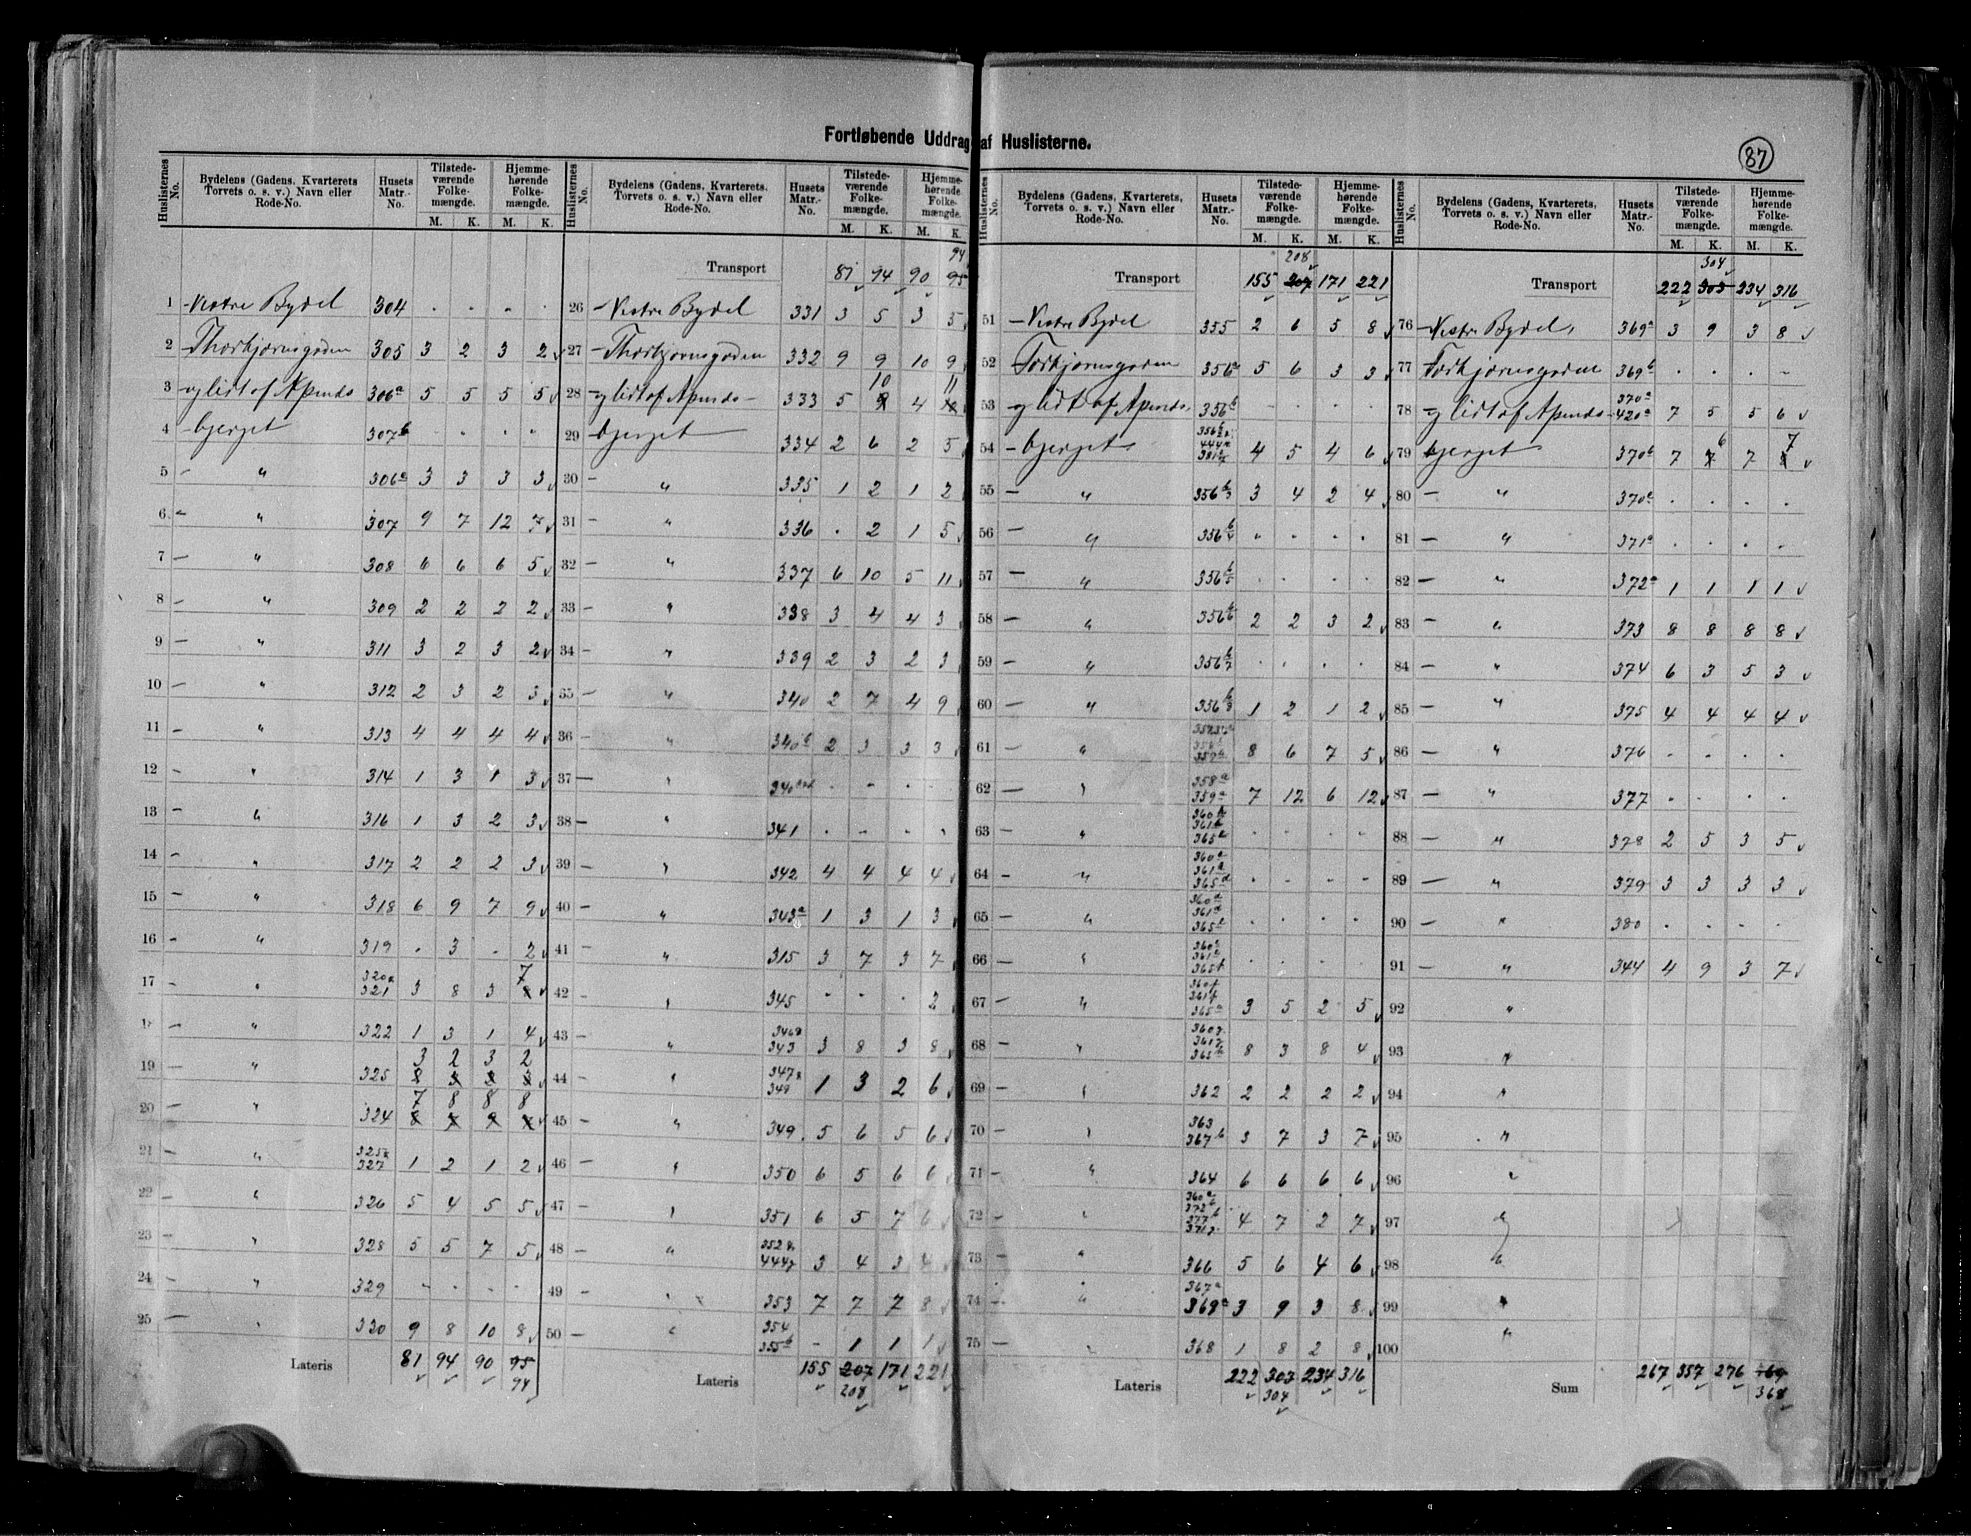 Fortløbende Uddrag af Huslisterne.
87
Huslisternes No. Bydelens (Gadens, Kvarterets Torvets o. s. v.) Navn eller Rode-No. Husets Matr.-No. Tilstede-værende Folke-mængde. M. K. Hjemme-hørende Folke-mængde. M. K.
1 Vestre Bydel 304 . . . .
2 Thorbjørnsgaden 305 3 2 3 2
3 og lidt af Apenæs 306a 5 5 5 5
4 bjerget 307b . . . .
5 " 306c 3 3 3 3
6 " 307 9 7 12 7
7 " 308 6 6 6 5
8 " 309 2 2 2 2
9 " 311 3 2 3 2
10 " 312 2 3 2 3
11 " 313 4 4 4 4
12 " 314 1 3 1 3
13 " 316 1 3 2 3
14 " 317 2 2 2 3
15 " 318 6 9 7 9
16 " 319 . 3 . 2
17 " 320a 321 3 8 3 7
18 " 322 1 3 1 4
19 " 325 3 2 3 2
20 " 324 7 8 8 8
21 " 327 1 2 1 2
22 " 326 5 4 5 5
23 " 328 5 5 7 5
24 " 329 . . . .
25 " 330 9 8 10 8
Lateris 81 94 90 95
94
Huslisternes No. Bydelens (Gadens, Kvarterets, Torvets o. s. v.) Navn eller Rode-No. Husets Matr.-No. Tilstede-værende Folke-mængde. M. K. Hjemme-hørende Folke-mængde. M. K.
94
Transport 81 94 90 95
26 Vestre Bydel 331 3 5 3 5
27 Thorbjørnsgaden 332 9 9 10 9
28 og lidt af Apenæs- 333 5 10 4 11
29 bjerget 334 2 6 2 5
30 " 335 1 2 1 2
31 " 336 . 2 1 5
32 " 337 6 10 5 11
33 " 338 3 4 4 3
34 " 339 2 3 2 3
35 " 340 2 7 4 9
36 " 340b 2 3 3 3
37 " . . . .
38 " 341 . . . .
39 " 342 4 4 4 4
40 " 343a 1 3 1 3
41 " 315 3 7 3 7
42 " 345 . . . 2
43 " 343 3 8 3 8
44 " 1 3 2 6
45 " 349 5 6 5 6
46 " 350 6 5 6 6
47 " 351 6 5 7 6
48 " 3 4 3 4
49 " 353 7 7 7 8
50 " 354 355b - 1 1 1
Lateris 155 207 171 221
208
Huslisternes No. Bydelens (Gadens, Kvarterets, Torvets o. s. v.) Navn eller Rode-No. Husets Matr.-No. Tilstede-værende Folke-mængde. M. K. Hjemme-hørende Folke-mængde. M. K.
208
Transport 155 207 171 221
51 Vestre Bydel 355 2 6 5 8
52 Torbjørnsgaden 356a 5 6 3 3
53 og lidt af Apenæs 356b . . . .
54 bjerget 4 5 4 6
55 " 3 4 2 4
56 " . . . .
57 " . . . .
58 " 2 2 3 2
59 " . . . .
60 " 1 2 1 2
61 " 8 6 7 5
62 " 358a 359a 7 12 6 12
63 " . . . .
64 " . . . .
65 " . . . .
66 " . . . .
67 " 3 5 2 5
68 " 8 3 8 4
69 " 362 2 2 2 2
70 " 363 367b 3 7 3 7
71 " 364 6 6 6 6
72 " 4 7 2 7
73 " 366 5 6 4 6
74 " 367a 369a 3 9 3 8
75 " 368 1 8 2 8
Lateris 222 303 234 316
304
Huslisternes No. Bydelens (Gadens, Kvarterets, Torvets o. s. v.) Navn eller Rode-No. Husets Matr.-No. Tilstede-værende Folke-mængde. M. K. Hjemme-hørende Folke-mængde. M. K.
304
Transport 222 303 234 316
76 Vestre Bydel, 369a 3 9 3 8
77 Torbjørnsgaden 369b . . . -
78 og lidt af Apenæs- 370a 420a 7 5 5 6
79 bjerget 370b 7 6 7 7
80 " 370c . . . .
81 " 371a . . . .
82 " 372a 1 1 1 1
83 " 373 8 8 8 8
84 " 374 6 3 5 3
85 " 375 4 4 4 4
86 " 376 . . . .
87 " 377 . . . .
88 " 378 2 5 3 5
89 " 379 3 3 3 3
90 " 380 . . . .
91 " 344 4 9 3 7
92 "
93 "
94 "
95 "
96 "
97 "
98 "
99 "
100 "
Sum 267 357 276 369
368